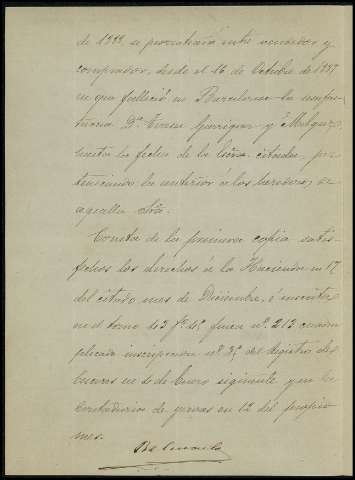 de 1888, se prorratearía entre vendedor y
comprador, desde el 16 de Octubre de 1887
en que falleció en Barcelona la usufruc
tuaria Dª Teresa Garriga y
hasta la fecha de la citada, per
teneciendo la anterior á los herederos de
aquella Sra.
Consta de la primera copia satis
fechos los derechos á la Hacienda en 17
del citado mes de Diciembre, é inscrita
en el tomo finca nº 213 cuadru
plicado inscripcion nº 3ª del registro de
en de Enero siguiente y en la
Contaduria de en 12 del propio
mes.